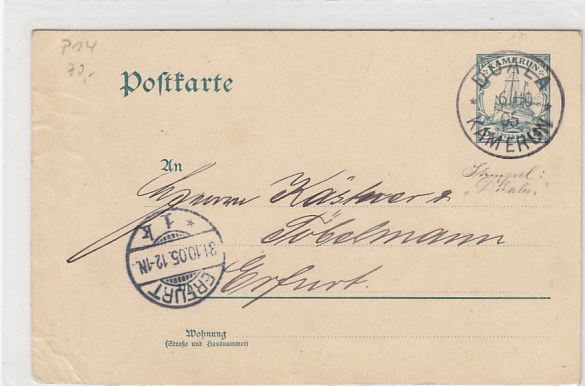 P14
70,-
Postkarte
KAMERUN
DUALA
6/10
05
KAMERUN
An
Herren Kästner &
Töbelmann
Erfurt.
Stempel:
"Duala"
* 1 k
31.10.05. 12-1N.
ERFURT
Wohnung
(Straße und Hausnummer)